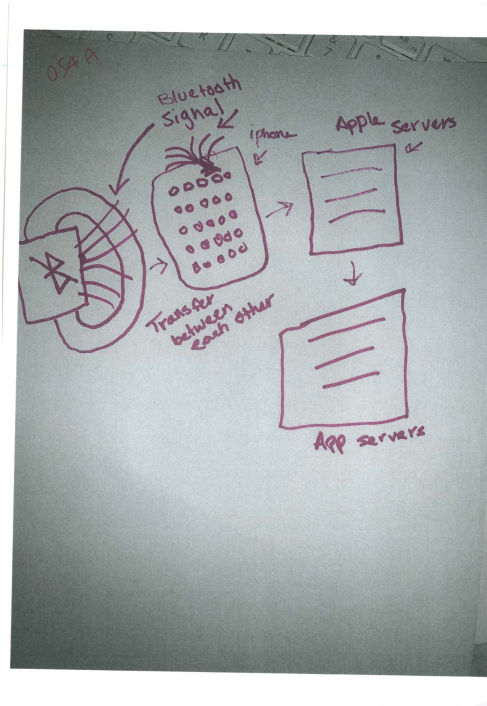 054A
Bluetooth
signal
iphone
Apple servers
Transfer
between
each other
App servers